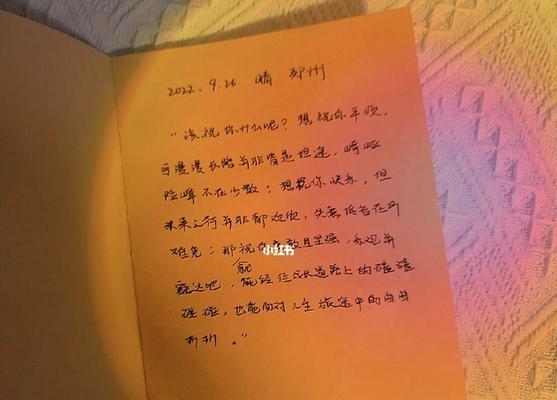 2022. 9. 26 晴 郑州
“该祝你什么呢？想祝你平顺，
可漫漫长路并非皆是坦途，崎岖
险峰不在少数；想祝你快乐，但
未来之行并非都欢愉，失意低谷在所
难免；那祝你勇敢且坚强，乐观并
小红书
豁达吧，能经住成长道路上的磕磕
碰碰，也能面对人生旅途中的曲曲
折折。”